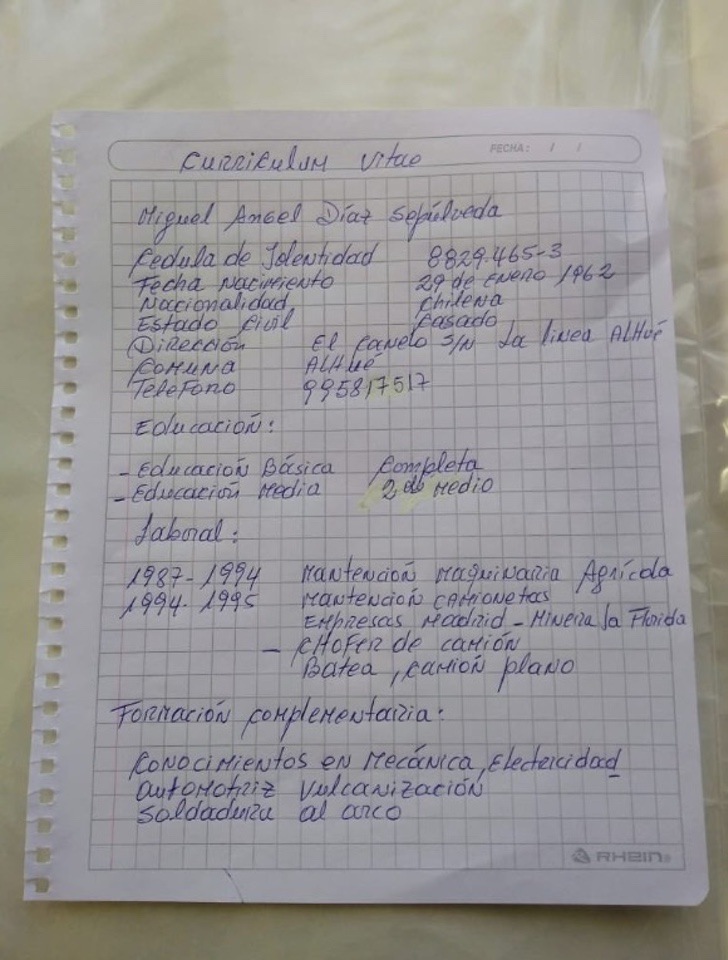 Curriculum Vitae
FECHA: / /
Miguel Angel Díaz Sepúlveda
Cedula de Identidad 8829.465-3
Fecha Nacimiento 29 de Enero 1962
Nacionalidad Chilena
Estado Civil Casado
Dirección El Canelo S/N La Linea ALHUé
Comuna ALHUé
Telefono 995817517
Educación:
- Educación Básica Completa
- Educación Media 2do Medio
Laboral:
1987-1994 Mantención Maquinaria Agrícola
1994-1995 Mantención Camionetas
Empresas Madrid - Minera La Florida
- CHOFER de camión
Batea, camión plano
Formación Complementaria:
Conocimientos en Mecánica, Electricidad
automotriz Vulcanización
Soldadura al arco
RHEIN